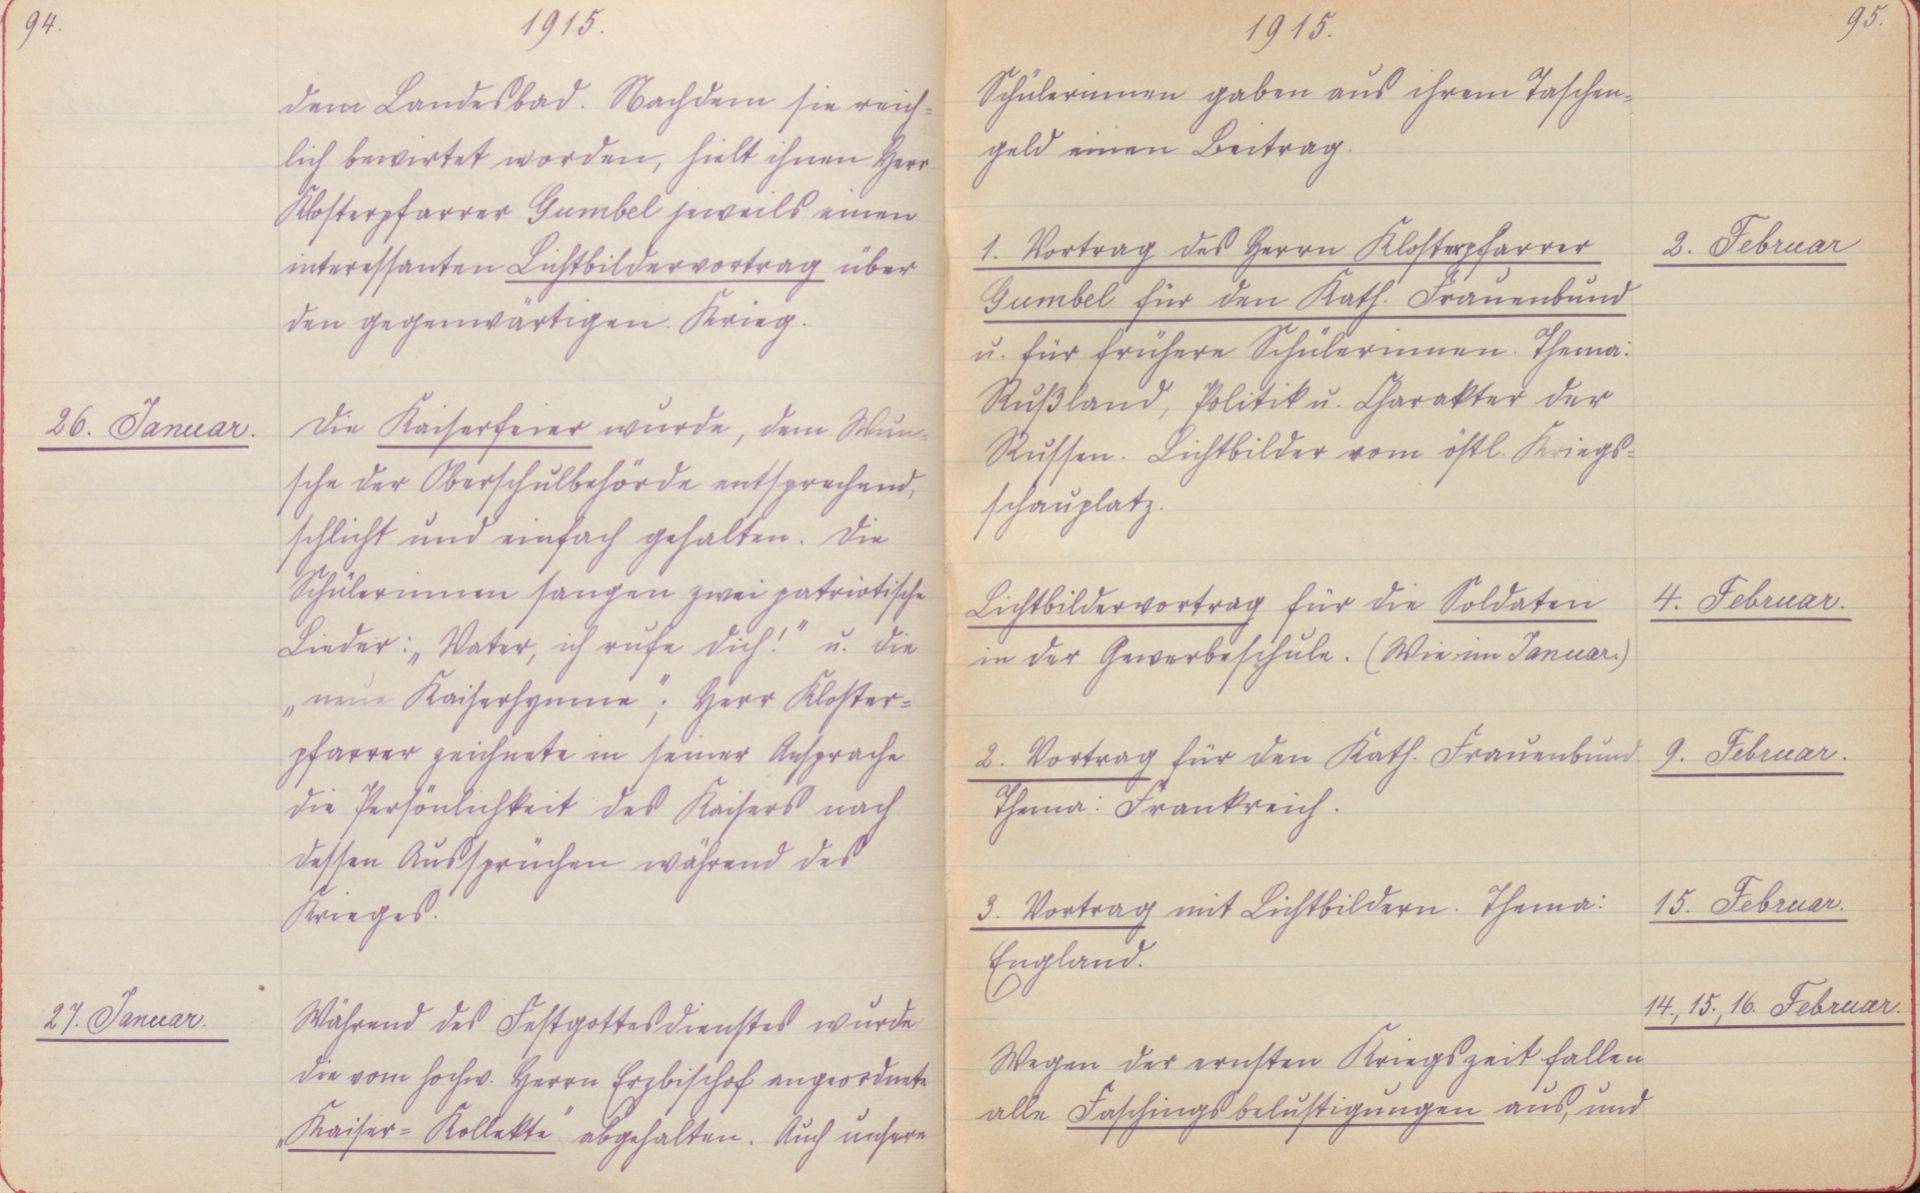 94.
1915.
dem Landesbad. Nachdem sie reich-
lich bewirtet worden, hielt ihnen Herr
Klosterpfarrer Gumbel jeweils einen
interessanten Lichtbildervortrag über
den gegenwärtigen Krieg.
26. Januar.
Die Kaiserfeier wurde, dem Wun-
sche der Oberschulbehörde entsprechend,
schlicht und einfach gehalten. Die
Schülerinnen sangen zwei patriotische
Lieder: „Vater, ich rufe dich!" u. die
„neue Kaiserhymne"; Herr Kloster-
pfarrer zeichnete in seiner Ansprache
die Persönlichkeit des Kaisers nach
dessen Aussprüchen während des
Krieges.
27. Januar.
Während des Festgottesdienstes wurde
die vom hochw. Herrn Erzbischof angeordnete
„Kaiser-Kollekte" abgehalten. Auch unsere
1915.
95.
Schülerinnen gaben aus ihrem Taschen-
geld einen Beitrag.
1. Vortrag des Herrn Klosterpfarrer
2. Februar
Gumbel für den Kath. Frauenbund
u. für frühere Schülerinnen. Thema:
Rußland, Politik u. Charakter der
Russen. Lichtbilder vom östl. Kriegs-
schauplatz.
Lichtbildervortrag für die Soldaten
4. Februar.
in der Gewerbeschule. (Wie im Januar.)
2. Vortrag für den Kath. Frauenbund
9. Februar.
Thema: Frankreich.
3. Vortrag mit Lichtbildern. Thema:
15. Februar.
England.
14., 15., 16. Februar.
Wegen der ernsten Kriegszeit fallen
alle Faschingsbelustigungen aus, und